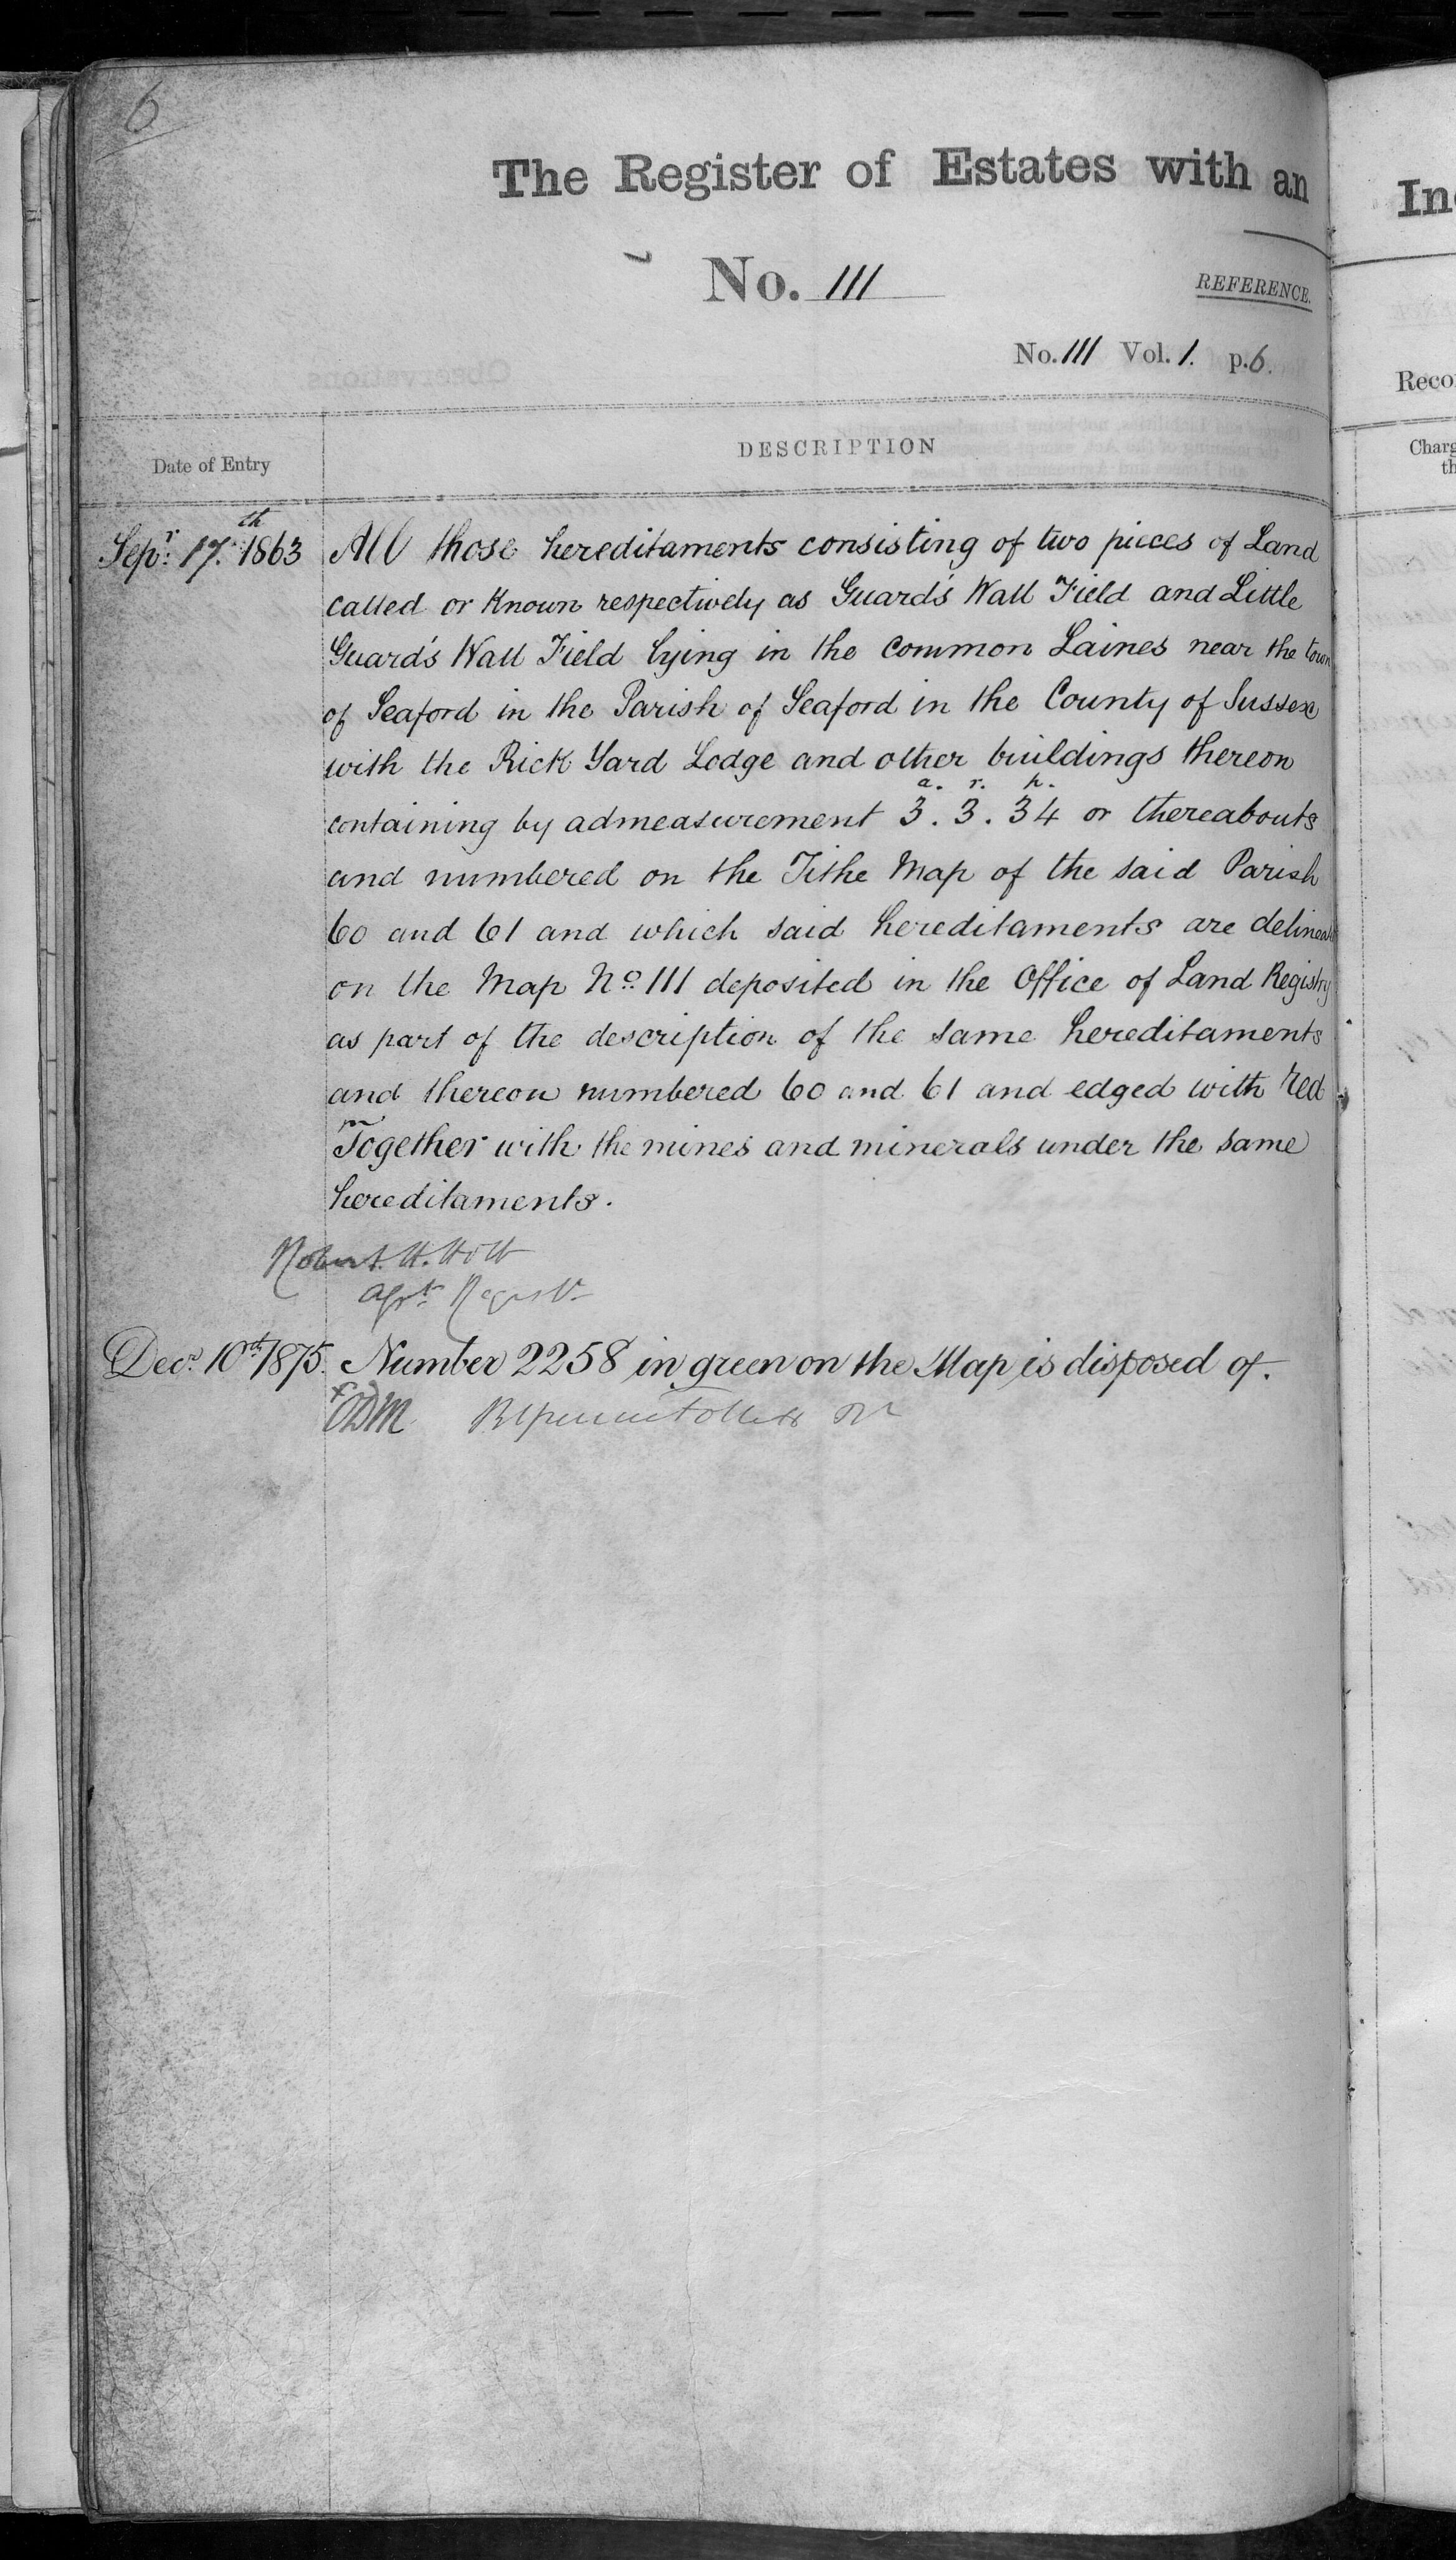 6
The Register of Estates with an
No. 111
REFERENCE.
No. 111 Vol. 1. p. 6.
Date of Entry
DESCRIPTION
Sepr. 17th. 1863 All those hereditaments consisting of two pieces of Land
called or Known respectively as Guard's Wall Field and Little
Guard's Wall Field lying in the Common Laines near the town
of Seaford in the Parish of Seaford in the County of Sussex
with the Rick Yard Lodge and other buildings thereon
a. r. p.
containing by admeasurement 3. 3. 34 or thereabouts
and numbered on the Tithe Map of the said Parish
60 and 61 and which said hereditaments are delineat
on the Map No. 111 deposited in the Office of Land Registry
as part of the description of the same hereditaments
and thereon numbered 60 and 61 and edged with red
Together with the mines and minerals under the same
hereditaments.
Robert H. Holt
Asst. Registr
Decr. 10th 1875. Number 2258 in green on the Map is disposed of.
In
Reco
Charg
th